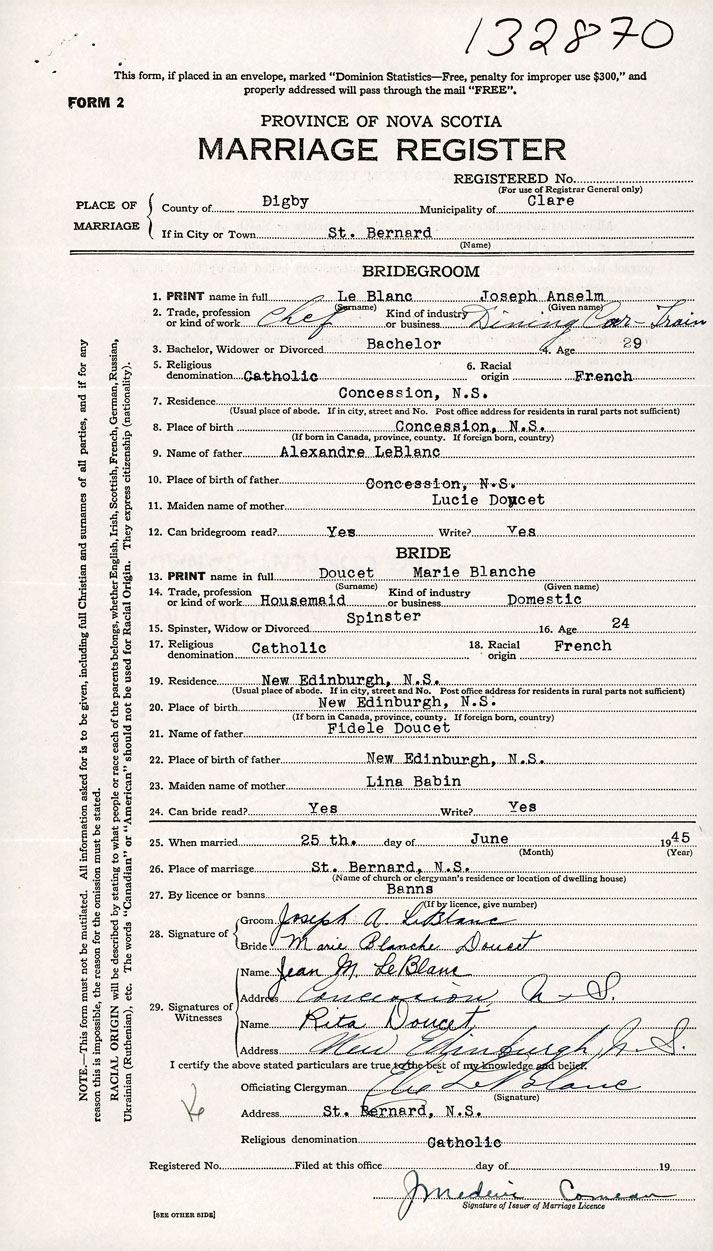 132870
This form, if placed in an envelope, marked "Dominion Statistics—Free, penalty for improper use $300," and
properly addressed will pass through the mail "FREE".
FORM 2
PROVINCE OF NOVA SCOTIA
MARRIAGE REGISTER
REGISTERED No.
(For use of Registrar General only)
PLACE OF MARRIAGE
County of Digby Municipality of Clare
If in City or Town St. Bernard
(Name)
BRIDEGROOM
1. PRINT name in full Le Blanc Joseph Anselm
(Surname) (Given name)
2. Trade, profession or kind of work Chef Kind of industry or business Dining Car - Train
3. Bachelor, Widower or Divorced Bachelor 4. Age 29
5. Religious denomination Catholic 6. Racial origin French
7. Residence Concession, N.S.
(Usual place of abode. If in city, street and No. Post office address for residents in rural parts not sufficient)
8. Place of birth Concession, N.S.
(If born in Canada, province, county. If foreign born, country)
9. Name of father Alexandre LeBlanc
10. Place of birth of father Concession, N.S.
11. Maiden name of mother Lucie Doucet
12. Can bridegroom read? Yes Write? Yes
BRIDE
13. PRINT name in full Doucet Marie Blanche
(Surname) (Given name)
14. Trade, profession or kind of work Housemaid Kind of industry or business Domestic
15. Spinster, Widow or Divorced Spinster 16. Age 24
17. Religious denomination Catholic 18. Racial origin French
19. Residence New Edinburgh, N.S.
(Usual place of abode. If in city, street and No. Post office address for residents in rural parts not sufficient)
20. Place of birth New Edinburgh, N.S.
(If born in Canada, province, county. If foreign born, country)
21. Name of father Fidele Doucet
22. Place of birth of father New Edinburgh, N.S.
23. Maiden name of mother Lina Babin
24. Can bride read? Yes Write? Yes
25. When married 25 th. day of June 1945
(Month) (Year)
26. Place of marriage St. Bernard, N.S.
(Name of church or clergyman's residence or location of dwelling house)
27. By licence or banns Banns
(If by licence, give number)
28. Signature of
Groom Joseph A LeBlanc
Bride Marie Blanche Doucet
29. Signatures of Witnesses
Name Jean M. LeBlanc
Address Concession, N-S.
Name Rita Doucet
Address New Edinburgh, N.S.
I certify the above stated particulars are true to the best of my knowledge and belief.
Officiating Clergyman Elie LeBlanc
(Signature)
Address St. Bernard, N.S.
Religious denomination Catholic
Registered No. Filed at this office day of 19
Comeau
Signature of Issuer of Marriage Licence
[SEE OTHER SIDE]
NOTE.—This form must not be mutilated. All information asked for is to be given, including full Christian and surnames of all parties, and if for any
reason this is impossible, the reason for the omission must be stated.
RACIAL ORIGIN will be described by stating to what people or race each of the parents belongs, whether English, Irish, Scottish, French, German, Russian,
Ukrainian (Ruthenian), etc. The words "Canadian" or "American" should not be used for Racial Origin. They express citizenship (nationality).